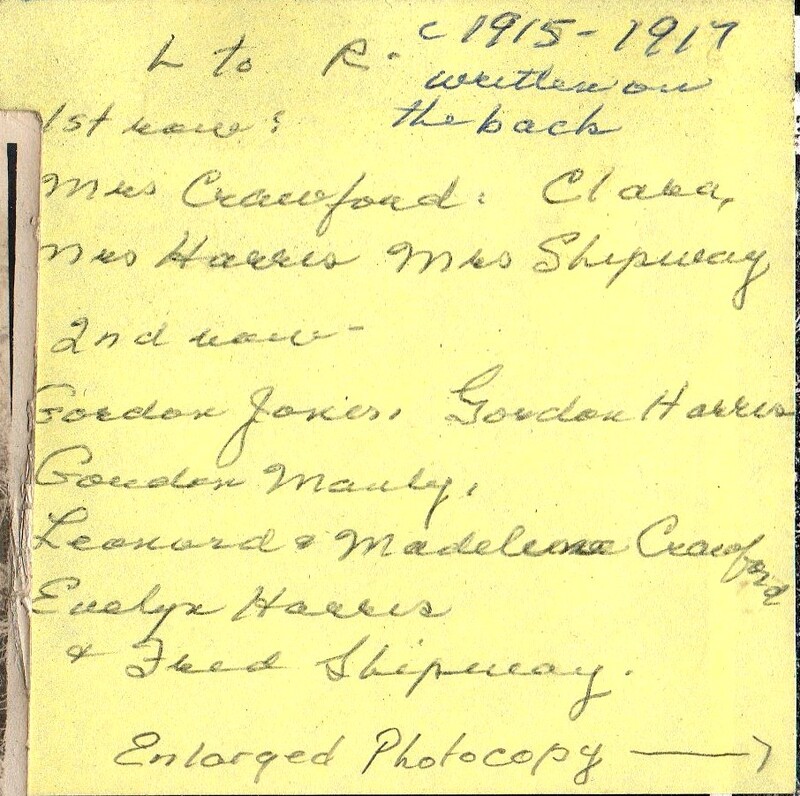 L to R. c 1915-1917
written on
the back
1st row:
Mrs Crawford: Clara,
Mrs Harris Mrs Shipway
2nd row-
Gordon Jones, Gordon Harris
Gordon Manly,
Leonard & Madeleine Crawford
Evelyn Harris
& Fred Shipway.
Enlarged Photocopy →